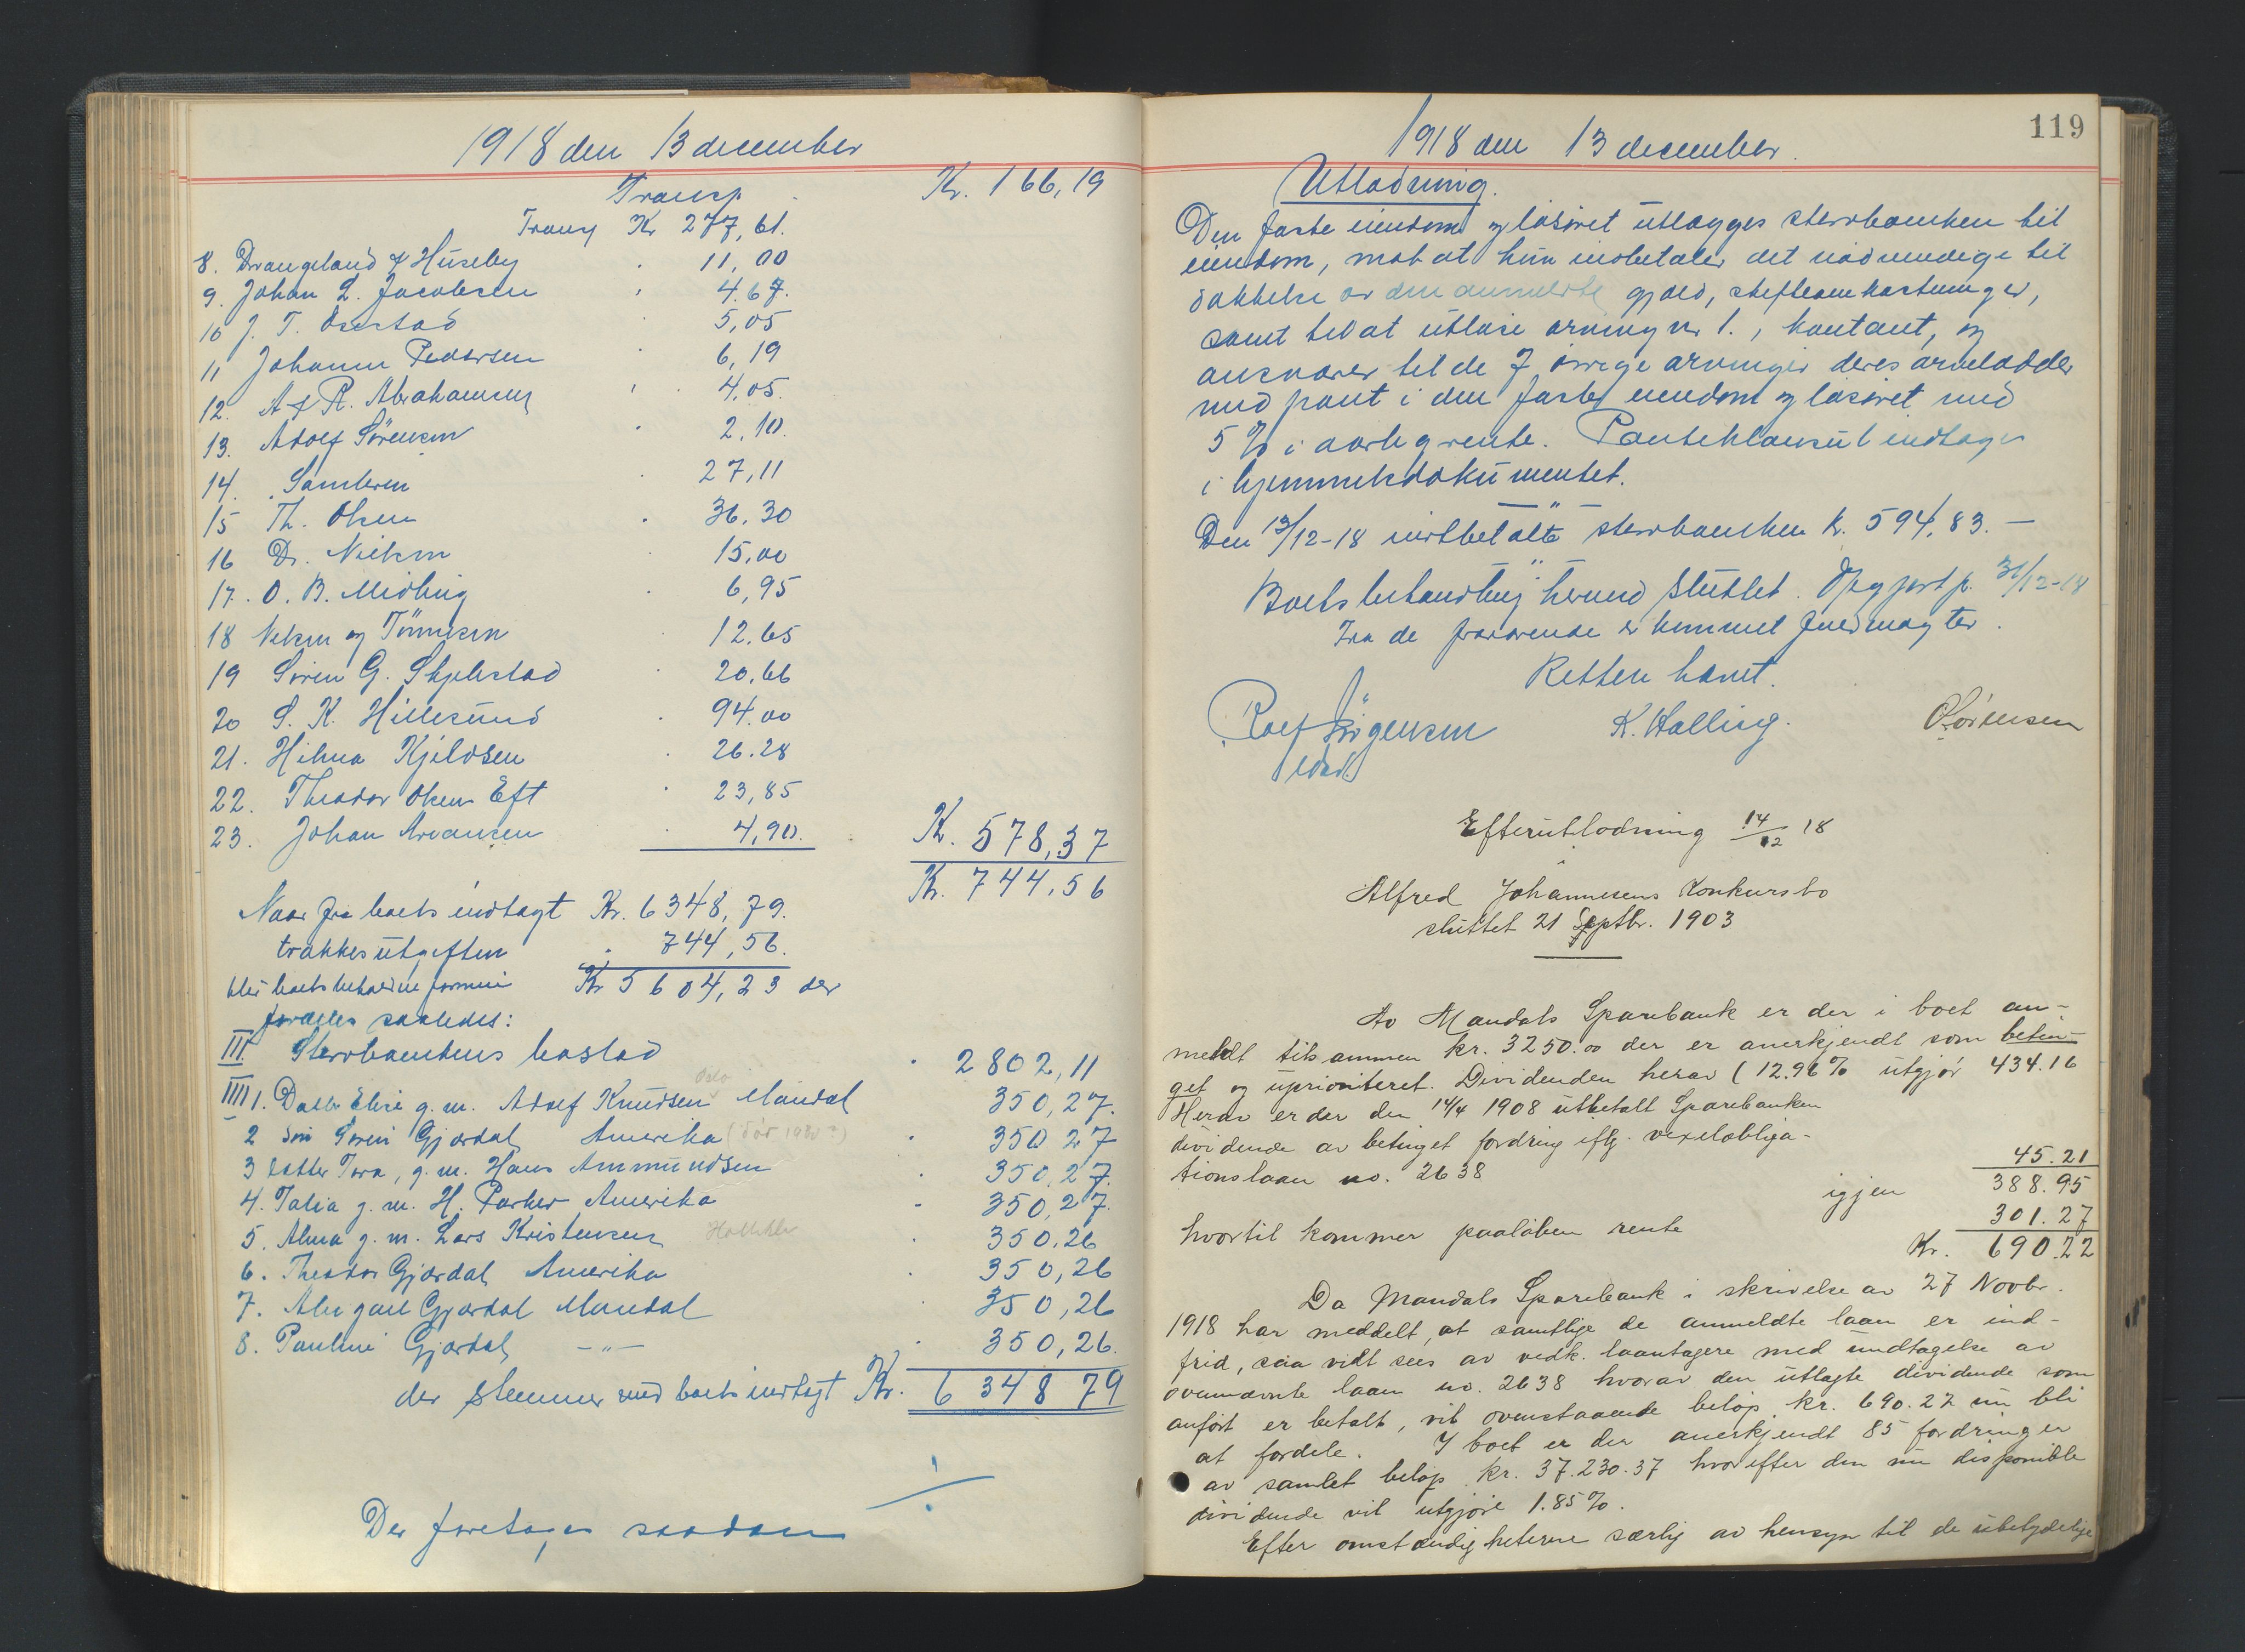 1918 den 13 december
Transp. Kr. 166,19
Transp Kr 277,61.
8. Drangeland & Huseby 11,00
9. Johan L. Jacobsen 4.67.
10 J. T. 5,05
11 Johann Pedersen 6,19
12. A & R. Abrahamsen 4,05.
13. Adolf Sørensen 2,10.
14. Samleren 27,11
15 Th. Olsen 36.30
16 Dr. Nielsen 15,00
17. O. B. Midling 6,95
18 Nielsen og Tønnesen 12.65
19 Søren G. Skjelstad 20,66
20 S. K. Hillesund 94.00
21. Hilma Kjeldsen 26.28
22. Theodor Olsens Eft 23,85
23. Johan Arvansen 4,90. Kr. 578,37
Kr. 744,56
Naar fra boets indtægt Kr. 6348,79.
trækkes utgiften 744,56.
blir boets beholdne formue Kr 5604,23 der
fordeles saaledes:
III Sterboenkens boslod 2802,11
IIII 1. Datter Elise g. m. Adolf Knudsen Oslo Mandal 350,27.
2 Søn Søren Gjærdal Amerika (død 1930?) 350 27
3 datter Tora, g. m. Hans Ammundsen 350,27.
4. Talia g. m. H. Parker Amerika 350,27.
5. Alma g. m. Lars Kristensen 350,26
6. Theodor Gjærdal Amerika 350,26
7. Abigael Gjærdal Mandal 350,26
8. Pauline Gjærdal -"- 350,26.
der stemmer med boets indtægt Kr. 6 348 79
Der foretages saadan
119
1918 den 13 december.
Utlodning.
Den faste eiendom og løsøret utlægges sterboenken til
eiendom, mot at hun indbetaler det nødvendige til
dækkelse av den anmeldte gjæld, skifteomkostninger,
samt til at utløse arving nr 1., kontant, og
ansvarer til de 7 øvrige arvinger deres arvelodder
med pant i den faste eiendom og løsøret med
5 % i aarlig rente. Panteklausul indtages
i hjemmelsdokumentet.
Den 13/12-18 indbetalte sterboenken kr. 594,83.—
Boets behandling hermed sluttet. Opgjort p. 31/12-18
Fra de fraværende er kommet fuldmagter.
Retten hævet.
Rolf Jørgensen K. Halling. O Sørensen
Efterutlodning 14/12 18
Alfred Johannesens Konkursbo
sluttet 21 Septbr. 1903
Av Mandals Sparebank er der i boet an-
meldt tilsammen kr. 3250.00 der er anerkjendt som betin-
get og uprioriteret. Dividenden herav (12.96% utgjør 434.16
Herav er der den 14/4 1908 utbetalt Sparebanken
dividende av betinget fordring iflg. vexelobliga-
tionslaan no. 2638 45.21
igjen 388.95
hvortil kommer paaløben rente 301.27
Kr. 690.22
Da Mandals Sparebank i skrivelse av 27 Novbr.
1918 har meddelt, at samtlige de anmeldte laan er ind-
frid, saa vidt sees av vedk. laantagere med undtagelse av
ovennævnte laan no. 2638 hvorav den utlagte dividende som
anført er betalt, vil ovenstaaende beløp kr. 690.22 nu bli
at fordele. I boet er der anerkjendt 85 fordringer
av samlet beløp kr. 37.230.37 hvorefter den nu disponible
dividende vil utgjøre 1.85%.
Efter omstændigheterne særlig av hensyn til de ubetydelige